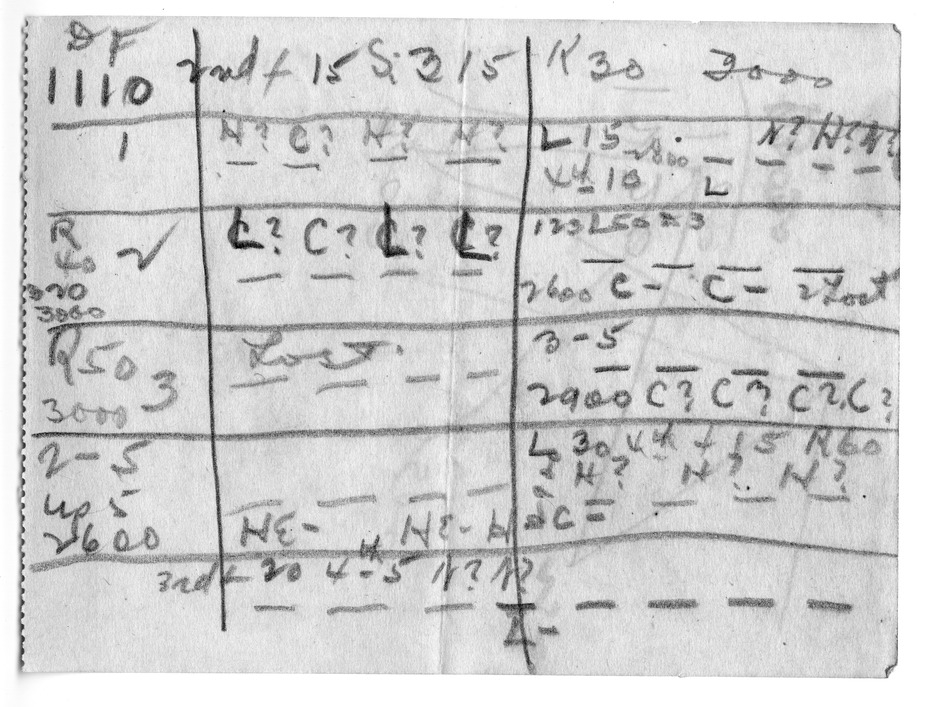 DF
1110
2nd + 15 S: 3 15
R 30 3000
1
H? C? H? H?
L 15 2800 N? H? N?
4th 10 L
R
40
320
3060
L? C? L? L?
123 L50 = 3
2600 C - C - 2 Lost
R50 3
3000
Lost
3-5
2900 C? C? C? C?
2-5
up 5
2600
HE- HE- H
L 30 4th + 15 R60
H? H? H?
C =
3rd + 20 4th-5 N? N?